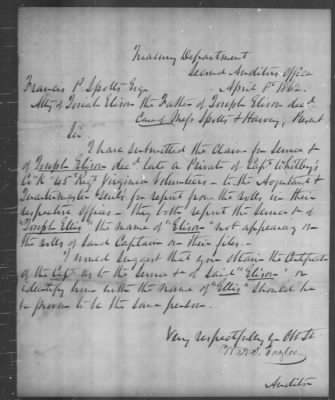 Treasury Department
Second Auditors Office
April 8th 1862.
Francis P. Spotts Esq
Atty of Josiah Elison the Father of Joseph Elison decd
Care of Messrs Spotts & Harvey, Present
Sir
I have submitted the Claim for service &
of Joseph Elison decd late a Private of Capt
Co "K" 45" Regt Virginia Volunteers - to the Adjutant &
Quartermaster Genls for report from the rolls in their
respective offices - they both report the service & of
"Joseph Ellis" the name of "Elison" not appearing on
the rolls of said Captain on their files.
I would suggest that you obtain the Certificate
of the Capt as to the service & of said "Elison" or
identify him with the name of "Ellis" should he
be proven to be the same person.
Very respectfully yr Obt St
Taylor
Auditor